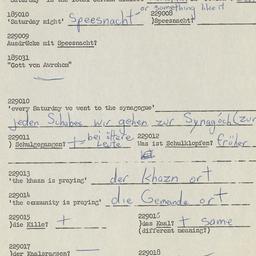 185010
'Saturday night' Speesnacht or something like it
229008
)Speesnacht?
229009
Ausdrücke mit Speesnacht?
185031
"Gott von Avrohom"
229010
'every Saturday we went to the synagogue'
jeden Schabes wir gehen zur Synagoch (zur
229011
) Schulgegangen? + bei ältere Leute
229012
Was ist Schulklopfen? früher
229013
'the khazn is praying' der khazn ort
229014
'the community is praying' die Gemande ort
229015
)die Kille? +
229016
)das Kaal? + same
(different meaning?)
229017
229018